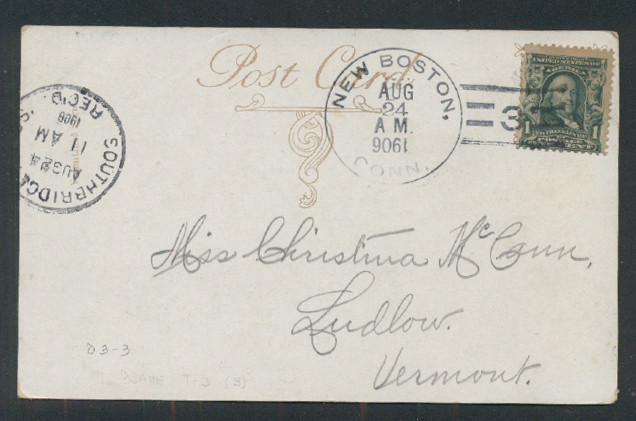 Post Card
NEW BOSTON,
AUG
24
A M.
9061
CONN.
3
UNITED STATES OF AMERICA
1 1
SOUTHBRIDGE
AUG 24
11 AM
1906
REC'D.
Miss Christina McCann,
Ludlow.
Vermont.
D3-3
T-3 (3)